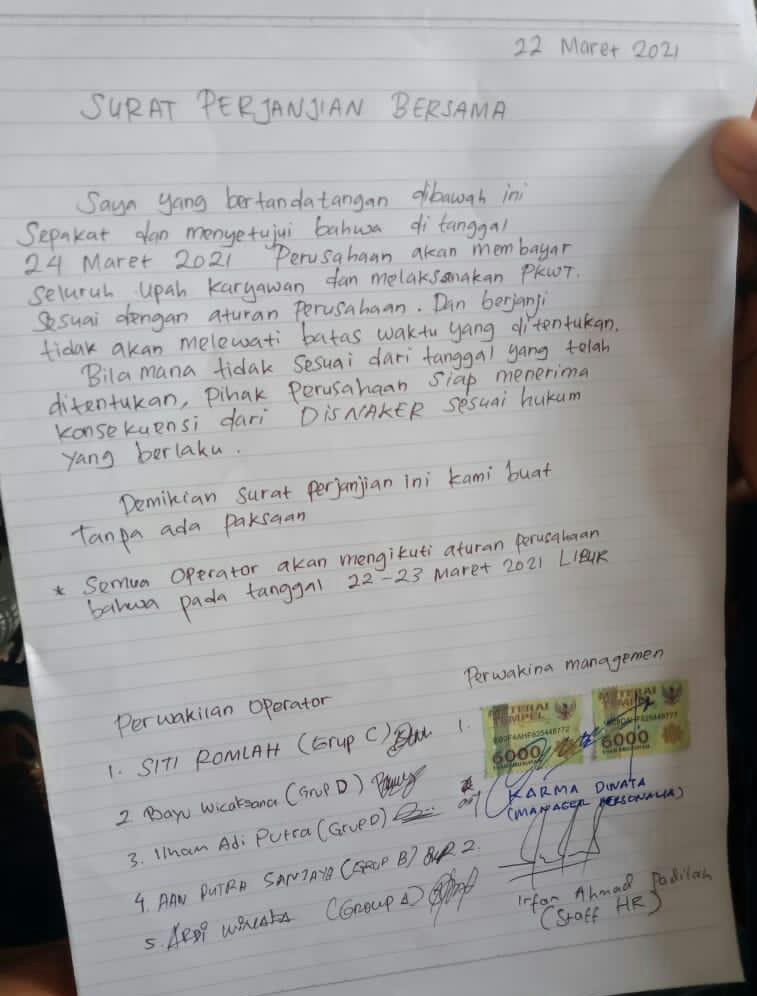 22 Maret 2021
SURAT PERJANJIAN BERSAMA
Saya yang bertandatangan dibawah ini
Sepakat dan menyetujui bahwa di tanggal
24 Maret 2021 Perusahaan akan membayar
seluruh upah karyawan dan melaksanakan PKWT.
Sesuai dengan aturan Perusahaan. Dan berjanji
tidak akan melewati batas waktu yang ditentukan.
Bila mana tidak sesuai dari tanggal yang telah
ditentukan, Pihak Perusahaan siap menerima
konsekuensi dari DISNAKER sesuai hukum
yang berlaku.
Demikian surat perjanjian ini kami buat
tanpa ada paksaan
* Semua operator akan mengikuti aturan perusahaan
bahwa pada tanggal 22-23 Maret 2021 LIBUR
Perwakilan Operator
Perwakina managemen
1. SITI ROMLAH (Grup C)
2. Bayu Wicaksana (Grup D)
3. Ilham Adi Putra (Grup D)
4. AAN PUTRA SANJAYA (GRUP B)
5. ARDI WINATA (Group A)
1.
METERAI TEMPEL
6000
METERAI TEMPEL
6000
KARMA DINATA
(MANAGER PERSONALIA)
2.
Irfan Ahmad Fadilah
(Staff HR)